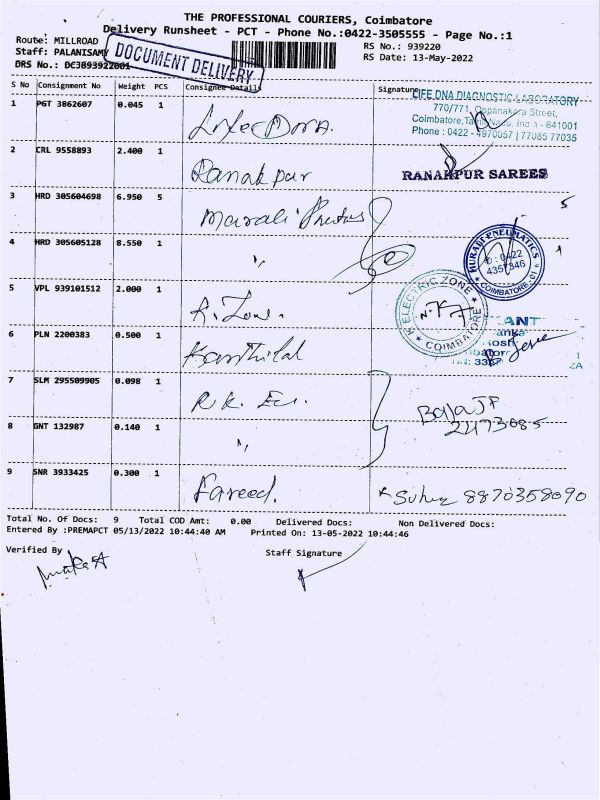 THE PROFESSIONAL COURIERS, Coimbatore
Delivery Runsheet - PCT - Phone No.:0422-3505555 - Page No.:1
Route: MILLROAD
RS No.: 939220
Staff: PALANISAMY
DOCUMENT DELIVERY
RS Date: 13-May-2022
DRS No.: DCJ893922001
S No Consignment No Weight PCS Consignee Details Signature
LIFE DNA DIAGNOSTIC LABORATORY
770/771, Oppanakara Street,
Coimbatore, Tamil Nadu, India - 641001
Phone : 0422 - 4970057 | 77085 77035
1 PGT 3862607 0.045 1
2 CRL 9558893 2.400 1 Ranakpur RANAKPUR SAREES
3 HRD 305604698 6.950 5 5
4 HRD 305605128 8.550 1 " 1
MURADI PNEUMATICS
0422
4357346
COIMBATORE - 01
5 VPL 939101512 2.000 1 R. Zone.
ELECTRIC ZONE
COIMBATORE
6 PLN 2200383 0.500 1
7 SLM 295509905 0.098 1
8 GNT 132987 0.140 1 "
Balaji
9 SNR 3933425 0.300 1 Fareed. 8870358090
Total No. Of Docs: 9 Total COD Amt: 0.00 Delivered Docs: Non Delivered Docs:
Entered By :PREMAPCT 05/13/2022 10:44:40 AM Printed On: 13-05-2022 10:44:46
Verified By Staff Signature